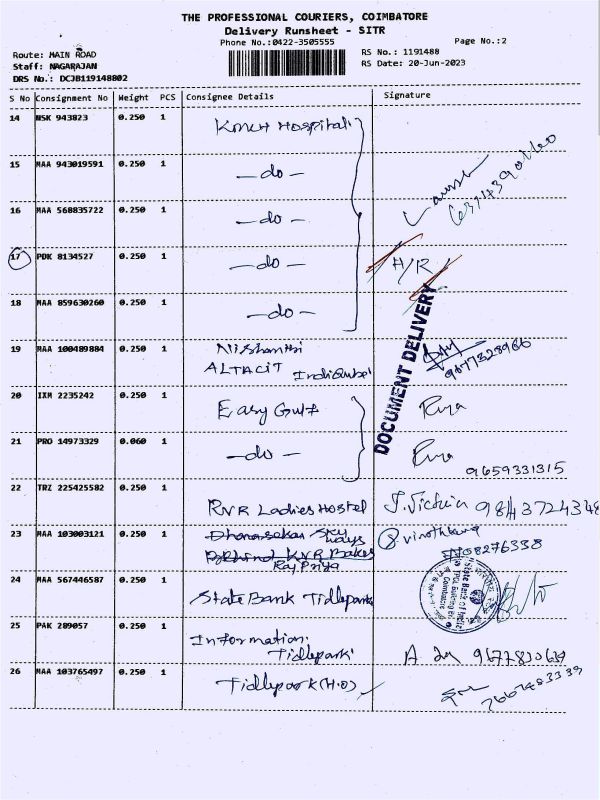 THE PROFESSIONAL COURIERS, COIMBATORE
Delivery Runsheet - SITR
Phone No.:0422-3505555
Page No.:2
Route: MAIN ROAD
Staff: NAGARAJAN
DRS No.: DCJB119148802
RS No.: 1191488
RS Date: 20-Jun-2023
S No Consignment No Weight PCS Consignee Details Signature
14 NSK 943823 0.250 1 KMCH Hospital
15 MAA 943019591 0.250 1 -do-
16 MAA 568835722 0.250 1 -do-
17 PDK 8134527 0.250 1 -do- H/R
18 MAA 859630260 0.250 1 -do-
DOCUMENT DELIVERY
19 MAA 100489884 0.250 1 Nishanthi
ALTACIT
20 IXM 2235242 0.250 1 Easy Gulf
21 PRO 14973329 0.060 1 -do-
9659331315
22 TRZ 225425582 0.250 1 RVR Ladies Hostel J.Victoria
23 MAA 103003121 0.250 1 Dhanasekar Sky
ways
Raj Priya
24 MAA 567446587 0.250 1 State Bank Tidlepark
State Bank of India
Coimbatore
25 PAK 289057 0.250 1 Information
Tidlepark
26 MAA 103765497 0.250 1 Tidlepark (H.O)